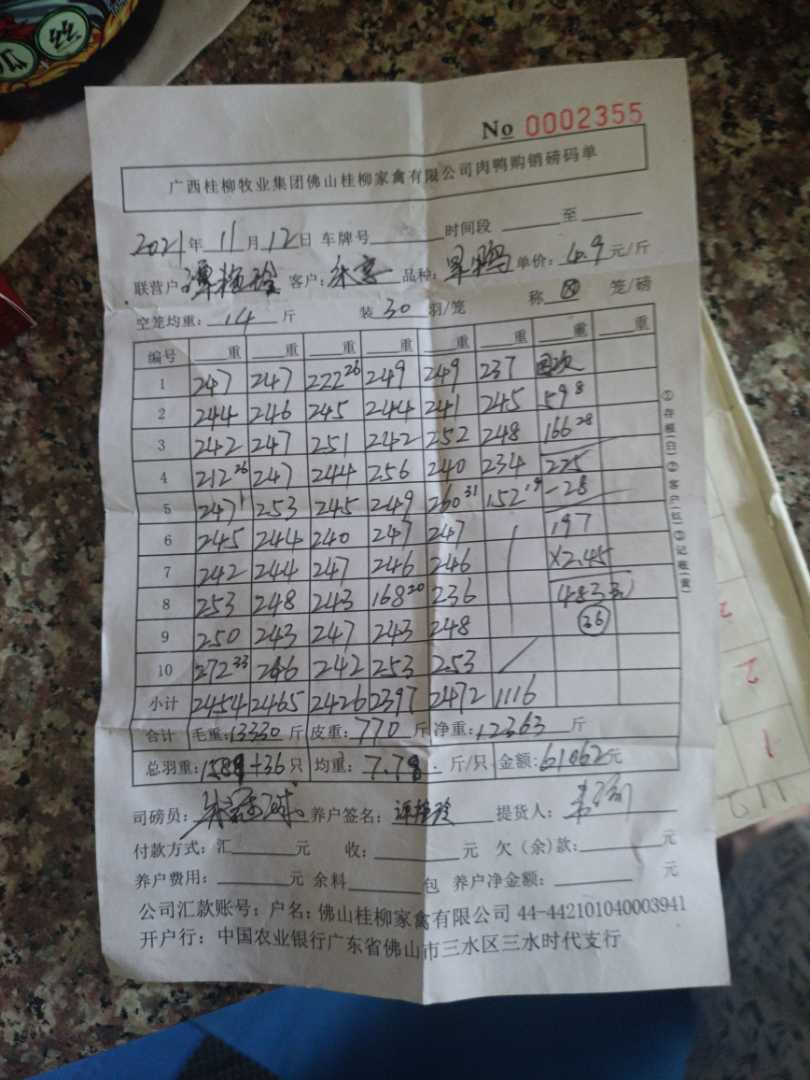 No 0002355
广西桂柳牧业集团佛山桂柳家禽有限公司肉鸭购销磅码单
2021年 11月 12日 车牌号 时间段 至
联营户: 谭 玲 客户: 品种: 单价: 4.9 元/斤
空笼均重: 14 斤 装 30 羽/笼 称 笼/磅
编号 重 重 重 重 重 重 重 重
1 247 247 222 26 249 249 237 次
2 244 246 245 244 241 245 59 8
3 242 247 251 242 252 248 166 28
4 212 26 247 244 256 240 234 225
5 247 1 253 245 249 260 31 152 19 -28
6 245 244 240 247 247 197
7 242 244 247 246 246 X2.45
8 253 248 243 168 20 236
9 250 243 247 243 248 36
10 272 33 246 242 253 253
小计 2454 2465 2426 2397 2472 1116
合计 毛重: 13330 斤 皮重: 770 斤 净重: 12363 斤
总羽重: +36 只 均重: 7.78 斤/只 金额: 61062元
司磅员: 养户签名: 谭 玲 提货人:
付款方式: 汇 元 收: 元 欠(余)款: 元
养户费用: 元 余料 包 养户净金额: 元
公司汇款账号: 户名: 佛山桂柳家禽有限公司 44-442101040003941
开户行: 中国农业银行广东省佛山市三水区三水时代支行
①存根(白)②客户(红)③记账(黄)
2
1